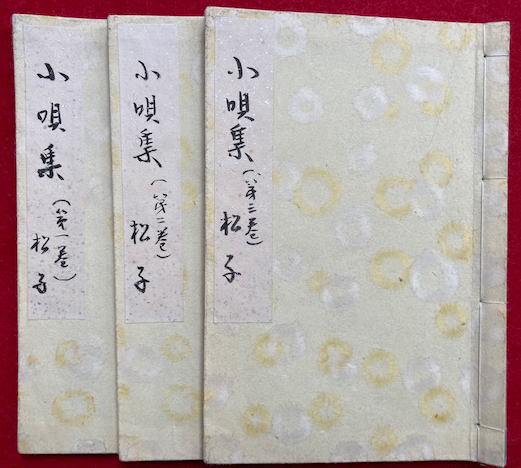 小唄集（第一巻）松子
小唄集（第二巻）松子
小唄集（第三巻）松子